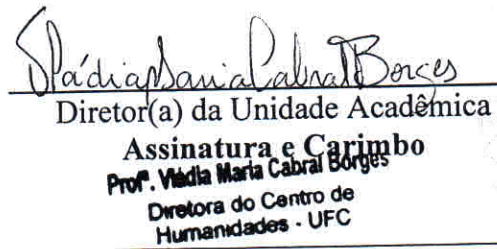 Vládia Maria Cabral Borges
Diretor(a) da Unidade Acadêmica
Assinatura e Carimbo
Profª. Vládia Maria Cabral Borges
Diretora do Centro de
Humanidades - UFC